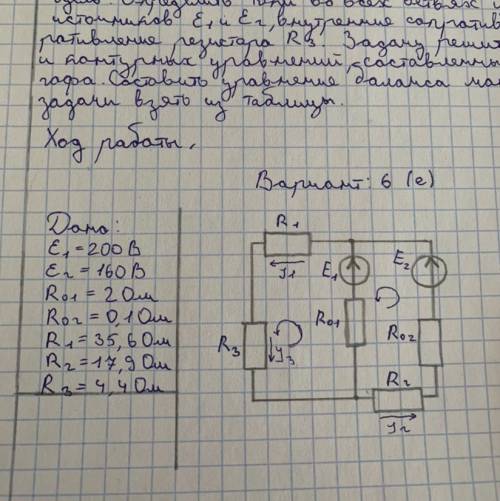 источников E1 и E2, внутренние
ративление резистора R3. Задачу
и контурных уравнений,
Составить уравнение баланса
задачи взять из таблицы.
Ход работы.
Вариант: 6 (е)
Дано:
E1 = 200 В
E2 = 160 В
R01 = 2 Ом
R02 = 0,1 Ом
R1 = 35,6 Ом
R2 = 17,9 Ом
R3 = 4,4 Ом
R1
J1
E1
E2
R01
R02
R3
J3
R2
J2